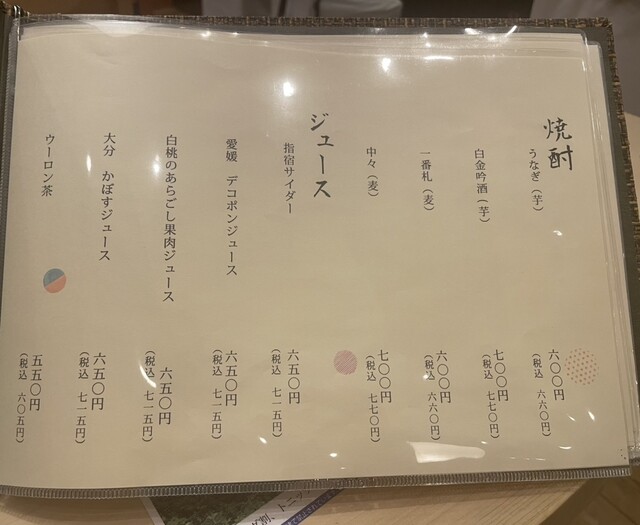 焼酎
うなぎ（芋）
六〇〇円
（税込 六六〇円）
白金吟酒（芋）
七〇〇円
（税込 七七〇円）
一番札（麦）
六〇〇円
（税込 六六〇円）
中々（麦）
七〇〇円
（税込 七七〇円）
ジュース
指宿サイダー
六五〇円
（税込 七一五円）
愛媛 デコポンジュース
六五〇円
（税込 七一五円）
白桃のあらごし果肉ジュース
六五〇円
（税込 七一五円）
大分 かぼすジュース
六五〇円
（税込 七一五円）
ウーロン茶
五五〇円
（税込 六〇五円）